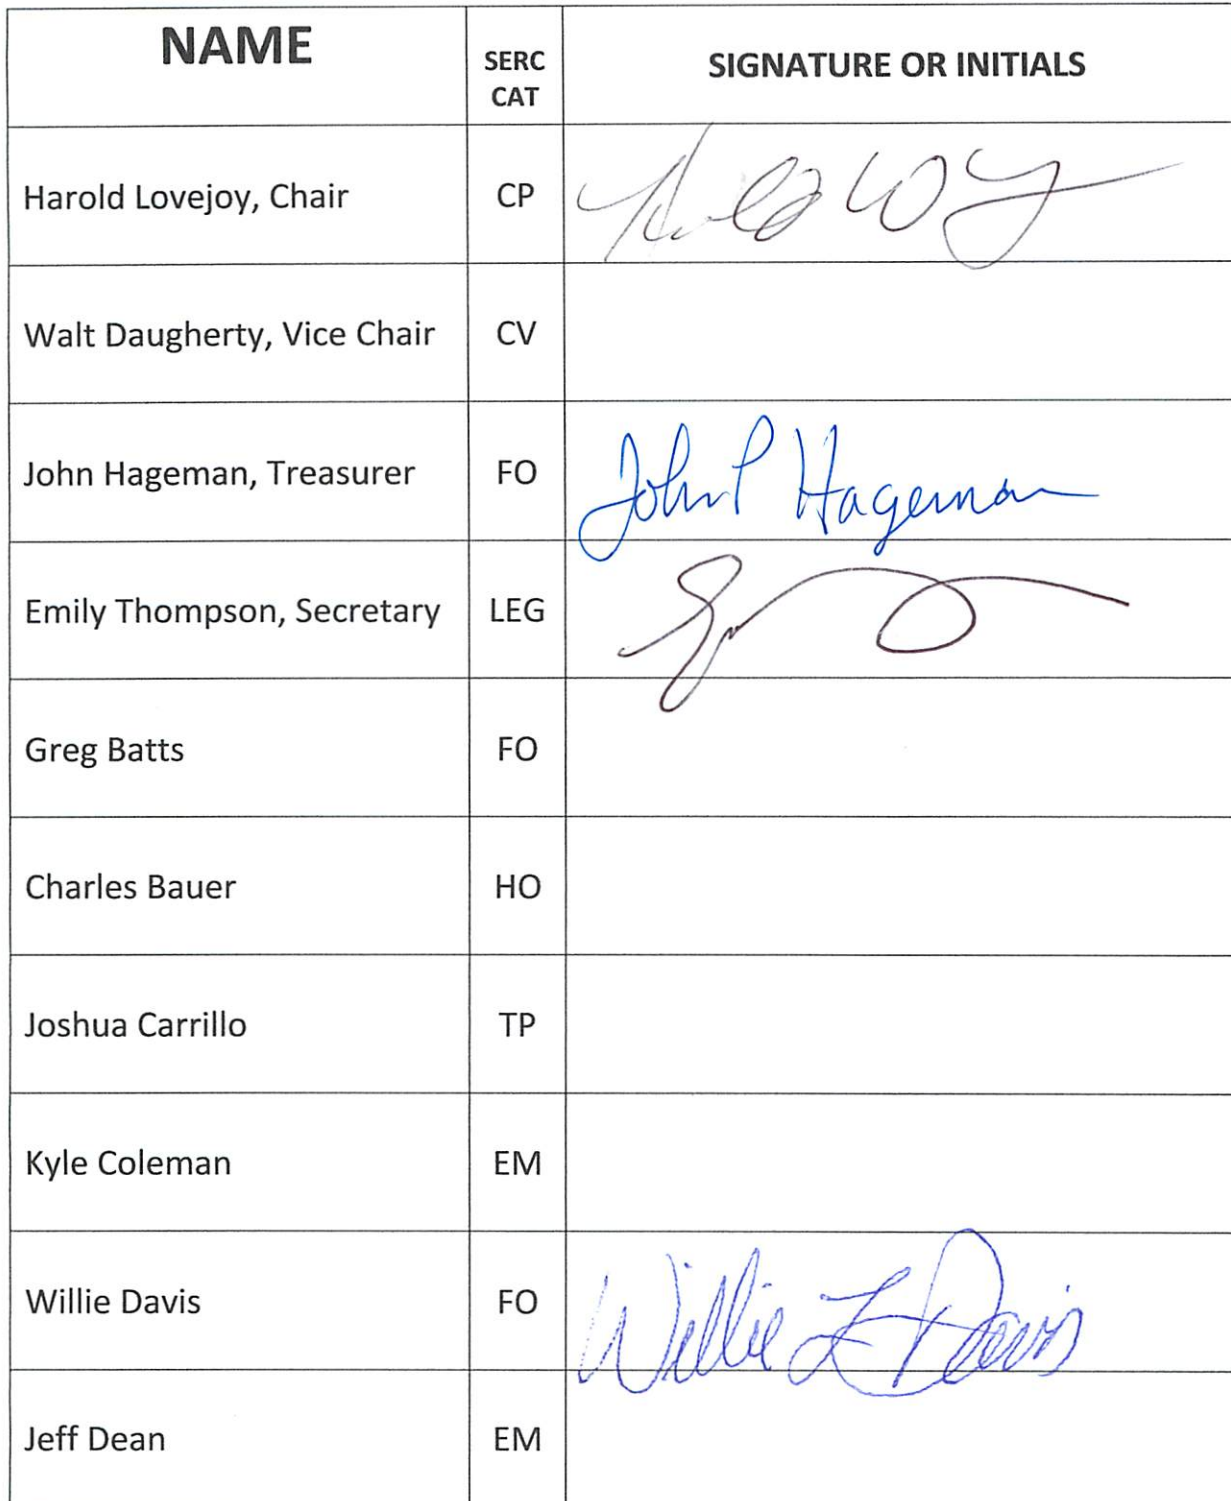 NAME SERC CAT SIGNATURE OR INITIALS
Harold Lovejoy, Chair CP
Walt Daugherty, Vice Chair CV
John Hageman, Treasurer FO John P Hageman
Emily Thompson, Secretary LEG
Greg Batts FO
Charles Bauer HO
Joshua Carrillo TP
Kyle Coleman EM
Willie Davis FO Willie L Davis
Jeff Dean EM